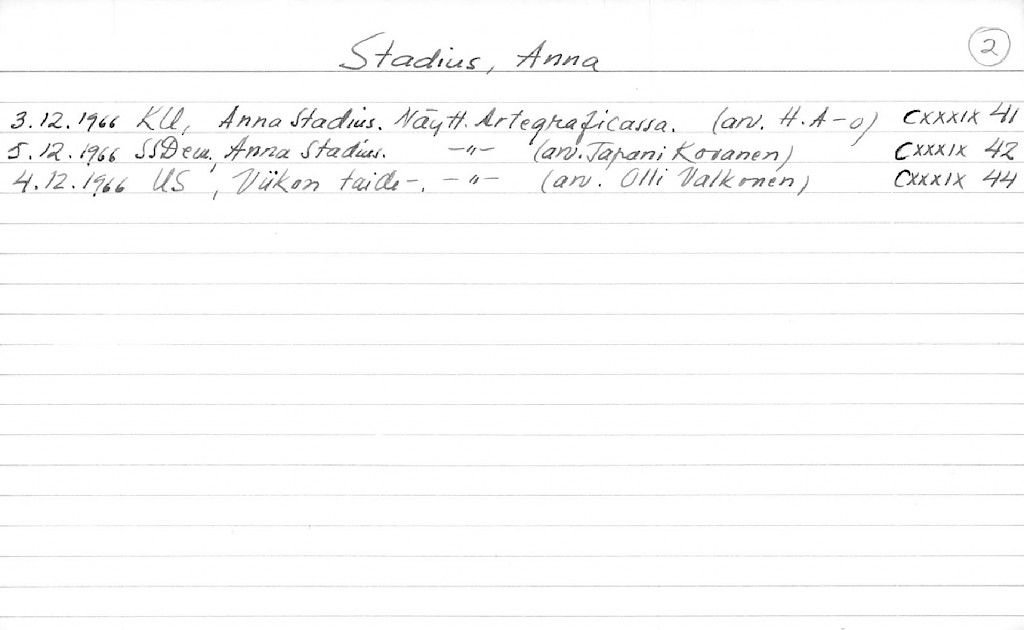 Stadius, Anna
2
3.12.1966 KU, Anna Stadius. Näytt. Artegraficassa. (arv. H. A-o) CXXXIX 41
5.12.1966 SSDem, Anna Stadius. -"- (arv. Tapani Kovanen) CXXXIX 42
4.12.1966 US, Viikon taide-. -"- (arv. Olli Valkonen) CXXXIX 44